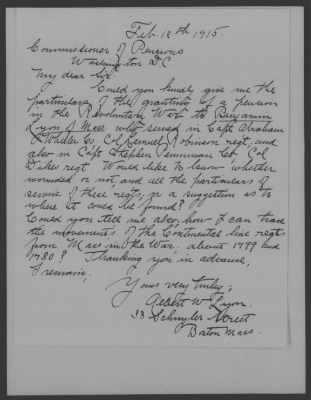 Feb. 12th 1915.
Commissioner of Pensions
Washington D.C.
My dear Sir
Could you kindly give me the
particulars of the granting of a pension
in the Revolution War to Benjamin
Lyon of Mass. who served in Capt Abraham
Wheeler Co, Col Lemuel Robinson regt, and
also in Capt Stephen Penniman Co Col
Dikes regt. Would like to know whether
wounded or not, and all the particulars of
service of these regts, or a suggestion as to
where it could be found?
Could you tell me also, how I can trace
the movements of the Continental line regts
from Mass in the War. about 1779 and
1780? Thanking you in advance,
I remain,
Yours very truly,
W. Lyon.
33 Schuyler Street
Boston Mass.